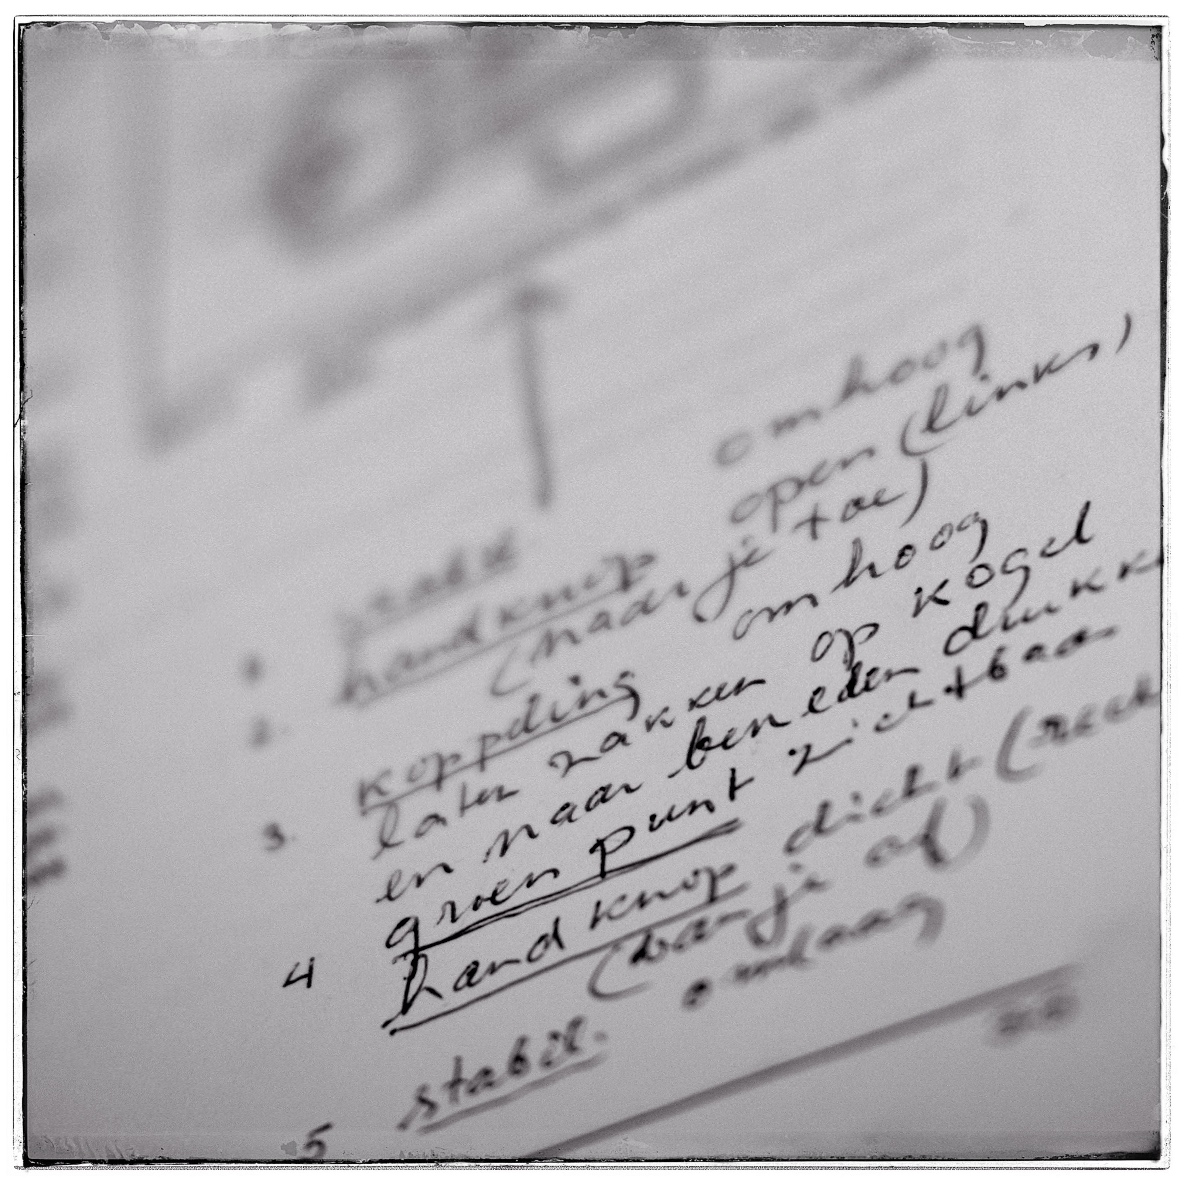 1. stabil. omhoog
2. handknop open (links)
(naar je toe)
3. koppding omhoog
laten zakken op kogel
en naar beneden drukke
groen punt zichtbaar
4 handknop dicht (rech
(van je af)
5 stabil. omlaag